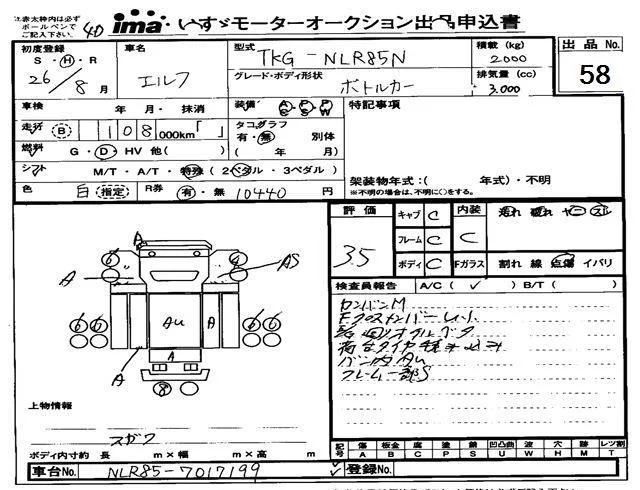 ※赤太枠内は必ず
ボールペンで
ご記入下さい。
4D
ima いすゞモーターオークション出品申込書
初度登録 S・H・R 26/8月
車名 エルフ
型式 TKG-NLR85N
積載 (kg) 2000
出品No. 58
グレード・ボディ形状 ボトルカー
排気量 (cc) 3,000
車検 年・月・抹消
装備 A C P S P W
特記事項
走行 B 1108 000km「 」
タコグラフ 有・無 別体 ( 年 月)
燃料 G・D・HV 他( )
シフト M/T・A/T・特殊 (2ペダル・3ペダル)
架装物年式:( 年式)・不明
※不明の場合は、不明に○をする。
色 白 (指定) R券 有・無 10440 円
評価 3.5
キャブ C 内装 C 汚れ 破れ ヤニ スレ
フレーム C
ボディ C Fガラス 割れ 線 点傷 イバリ
検査員報告 A/C( ✓ ) B/T( )
カンバンM
荷台タイヤ積み込み
バン内AU
フレーム一部S
A AS
AU A
A A
6 6 6 6
8
上物情報
スガワ
ボディ内寸約 長 m×幅 m×高 m
記号 傷 A 板金 B 腐 C 塗 P 錆 S 凹凸曲 U 波 W 穴 H 跡 M レツ割 T
車台No. NLR85-7017199
登録No.